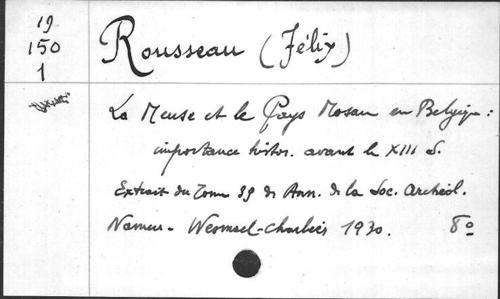 19
150
1
Rousseau (Félix)
La Meuse et le Pays Mosan en Belgique :
importance histor. avant le XIII S.
Extrait du Tome 39 d. Ann. de la Soc. Archéol.
Namur - Wesmael-Charlier 1930. 8º